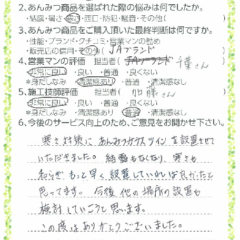 2.あんみつ商品を選ばれた際の悩みは何でしたか。
・結露・暑さ・寒さ・防犯・騒音・その他(
3.あんみつ商品をご購入頂いた最終判断は何ですか。
・性能・ブランド・クチコミ・営業マンの勧め
・販売店の信用・その他( JAグランド )
4.営業マンの評価 担当者( 様さん
非常に良い・良い・普通・良くない
※身だしなみ 清潔感あり・普通・清潔感なし
5.施工技師評価 担当者( さん
非常に良い・良い・普通・良くない
※身だしなみ 清潔感あり・普通・清潔感なし
6.今後のサービス向上のため、ご意見をお聞かせ下さい。
寒さ対策に あんみつガラス ツインを設置させて
いただきました。 結露もなくなり、寒さも
和らぎ もっと早く設置していれば良かったと
思ってます。 今後 他の場所の設置も
検討していこうと思います。
この度はありがとうございました。